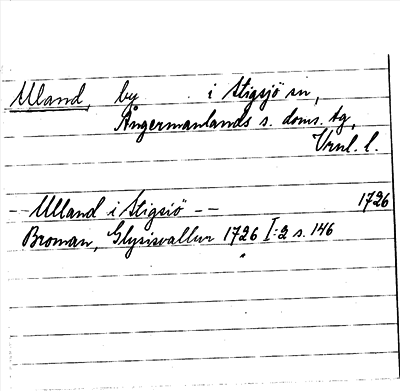 Uland, by i Stigsjö sn,
Ångermanlands s. doms. tg,
Vrnl. l.
-- Ulland i Stigsiö -- 1726
Broman, Glysisvallur 1726 I:2 s. 146